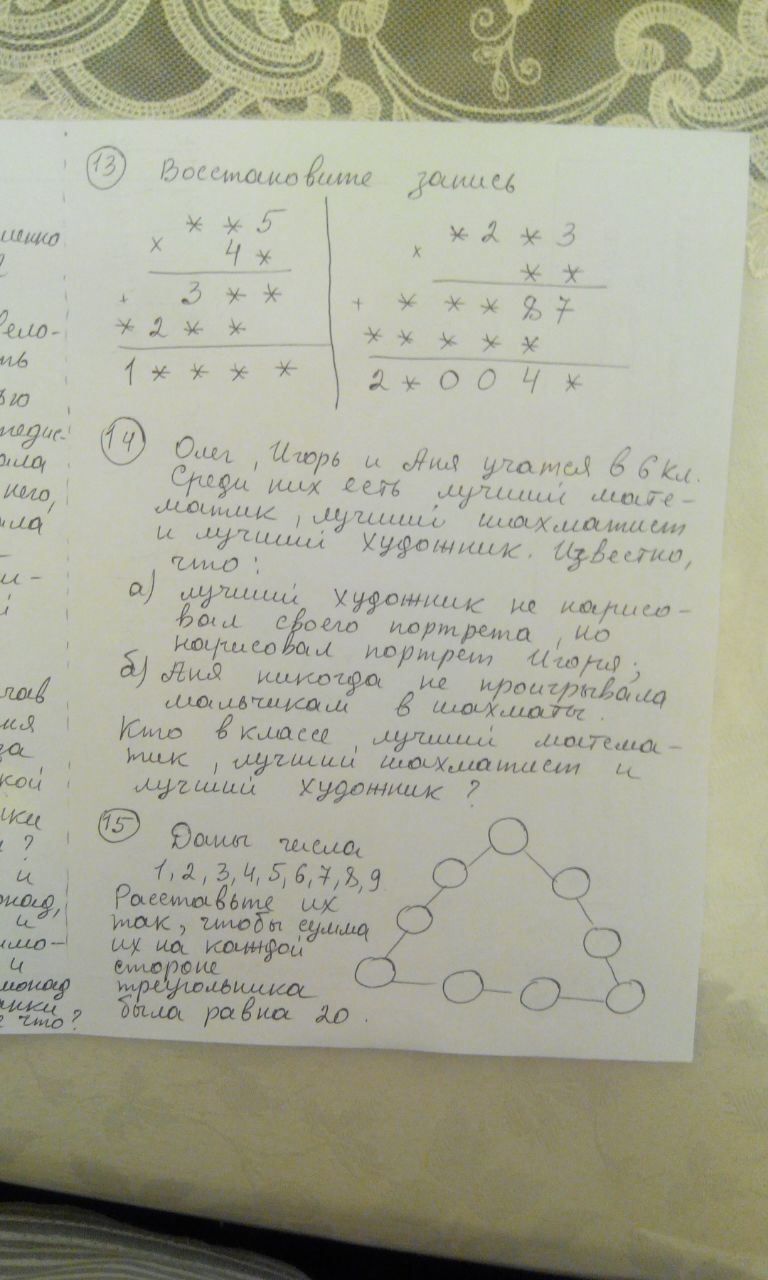 13 Восстановите запись
* * 5
x 4 *
+ 3 * *
* 2 * *
1 * * * *
* 2 * 3
x * *
+ * * * 8 7
* * * * *
2 * 0 0 4 *
14 Олег, Игорь и Аня учатся в 6 кл.
Среди них есть лучший мате-
матик, лучший шахматист
и лучший художник. Известно,
что:
а) лучший художник не нарисо-
вал своего портрета, но
нарисовал портрет Игоря;
б) Аня никогда не проигрывала
мальчикам в шахматы.
Кто в классе лучший матема-
тик, лучший шахматист и
лучший художник?
15 Даны числа
1, 2, 3, 4, 5, 6, 7, 8, 9
Расставьте их
так, чтобы сумма
их на каждой
стороне
треугольника
была равна 20.